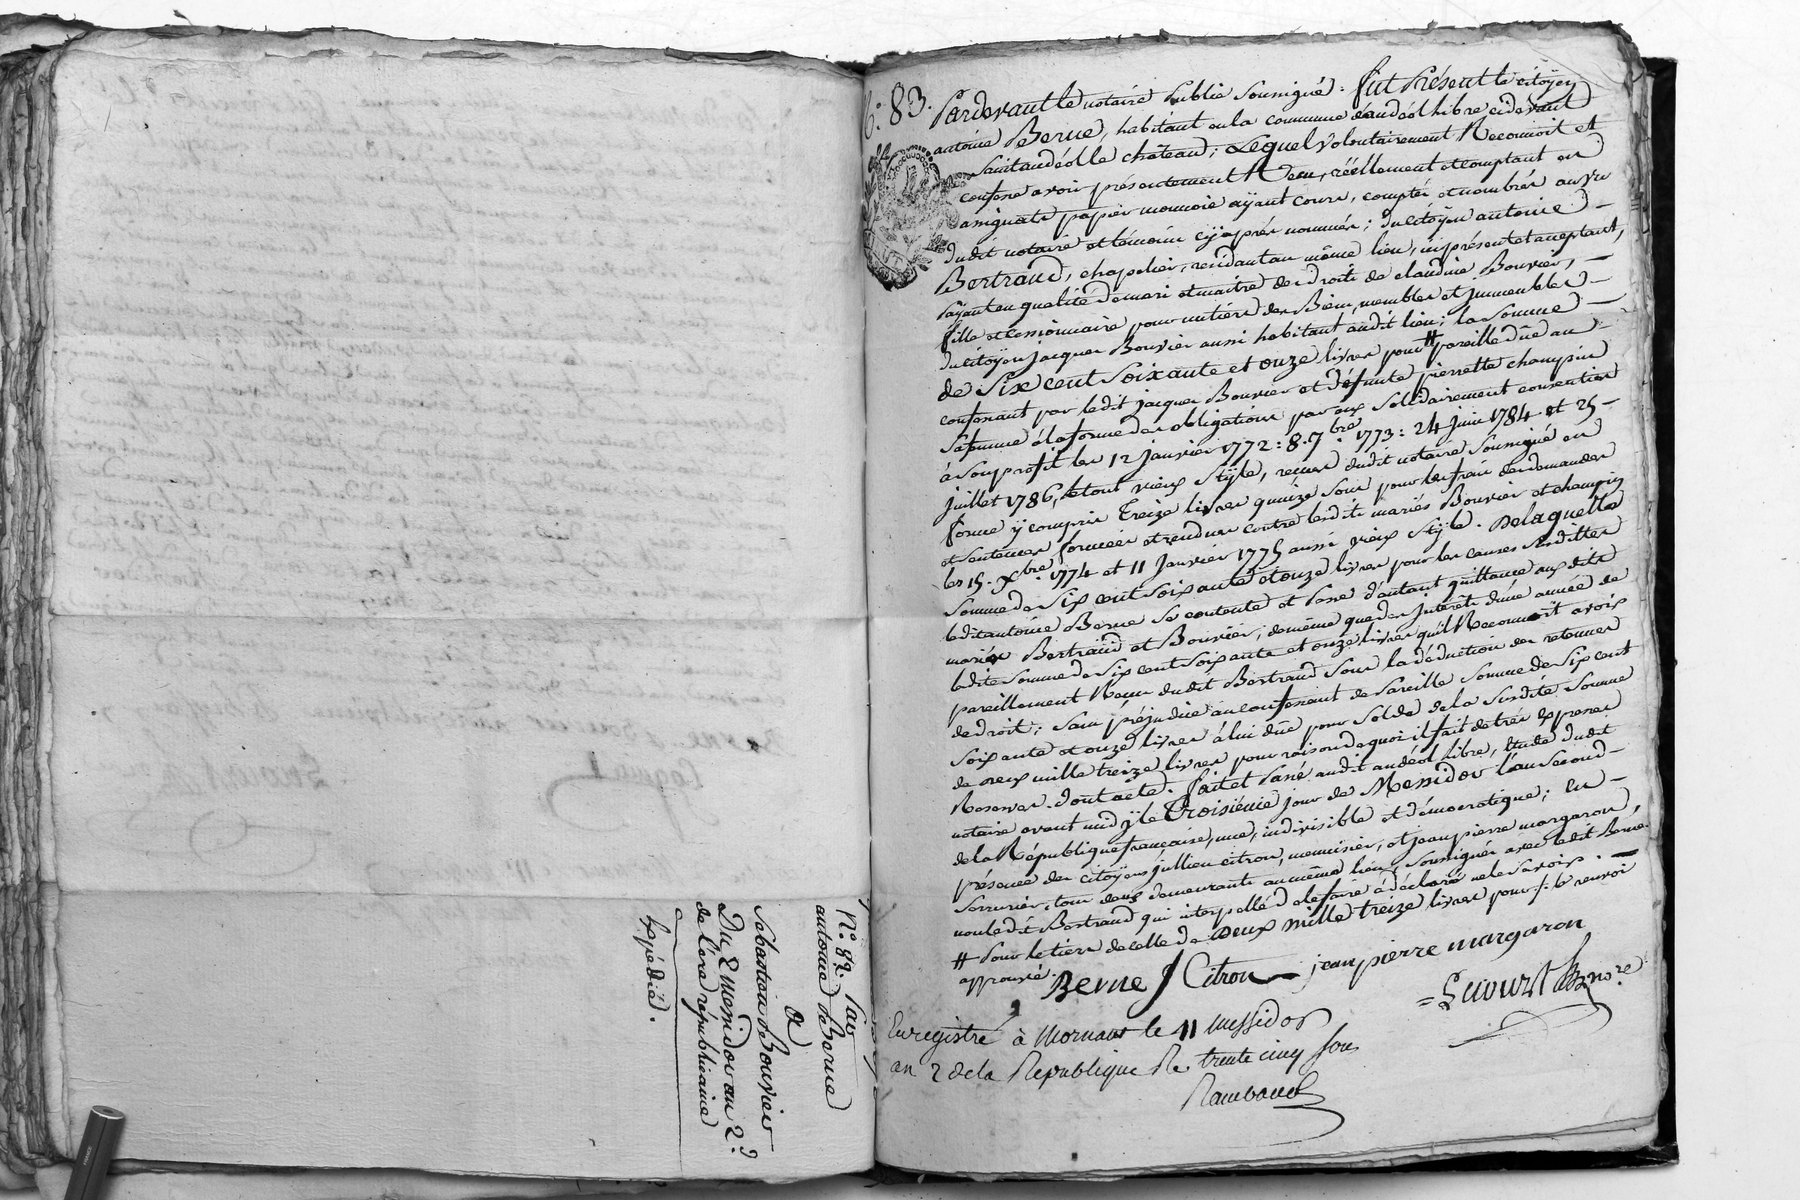 N.º 82. Par
antoine de Berne
a
Sebastien de Bouvier
Du 2 messidor an 2.d
de l'ère républicaine
Expédié.
N.º 83. Pardevant le notaire Public Soussigné : fut Présent le citoÿen
antoine Berne, habitant en la commune d'andéol libre cidevant
Saint andéol le château ; Lequel volontairement Reconnoit et
confesse avoir présentement Recu, réellement et comptant en
assignats papier monnoie aÿant cours, comptés et nombrés au vu
dudit notaire et témoins cÿ après nommés ; du citoÿen antoine
Bertrand, chapelier, residant au même lieu, icy présent et acceptant,
Payant en qualité de mari et maitre des droits de claudine Bouvier,
fille et cessionnaire pour un tiers des Biens, meubles et immeubles
du citoÿen jacques Bouvier aussi habitant audit lieu ; la Somme
de Six cent Soixante et onze livres pour # pareille düe au
confessant par ledit jacques Bouvier et défunte pierrette champin
Sa femme à la forme des obligations par eux Solidairement consenties
à Son profit les 12 janvier 1772 : 8. 7.bre 1773 : 24 juin 1784 et 25
juillet 1786, le tout vieux Stÿle, recues dudit notaire Soussigné en
forme ÿ compris Treize livres quinze Sous pour les frais des demandes
et Sentences formées et rendues contre lesdits mariés Bouvier et champin
les 15. X.bre 1774 et 11 Janvier 1775 aussi vieux Stÿle. De laquelle
Somme de Six cent Soixante et onze livres pour les causes Susdittes
ledit antoine Berne Se contente et Passe d'autant quittance aux dits
mariés Bertrand et Bouvier ; de même que des Interêts d'une année de
ladite Somme de Six cent Soixante et onze livres qu'il Reconnoit avoir
pareillement Recu dudit Bertrand Sous la déduction des retenues
de droit ; Sans préjudice au confessant de Pareille Somme de Six cent
Soixante et onze livres à lui düe pour Solde de la Susdite Somme
de deux mille treize livres pour raison de quoi il fait de très expresses
Reserves. dont acte. fait et Passé audit andéol libre, Etude dudit
notaire avant midÿ le Troisième jour de Messidor l'an Second
de la République francaise, une, indivisible et démocratique ; En
présence des citoÿens jullien citron, menuisier, et jean pierre margaron,
Serrurier, tous deux demeurants au même lieu, Soussignés avec ledit Berne
non ledit Bertrand qui interpellé de le faire a déclaré ne le Savoir.
# Pour le tiers de celle de Deux mille treize livres pour le renvoi
approuvé.
Berne J Citron jean pierre margaron
Enregistré à Mornant le 11 messidor
an 2 de la Republique R. trente cinq sous